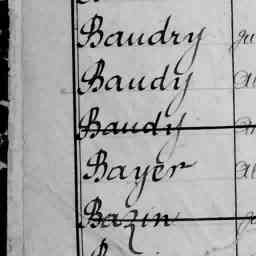 Baudry
Baudy
Baudy
Bayer
Bazin